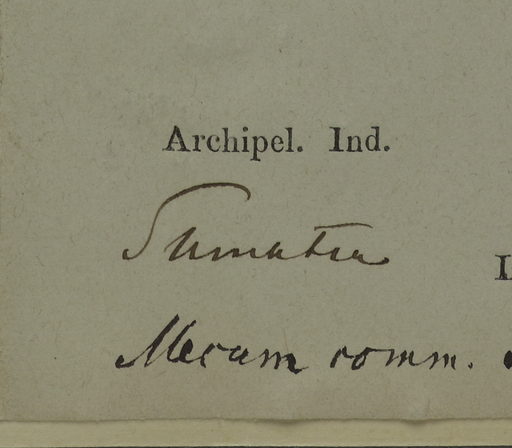 Archipel. Ind.
Sumatra
Mecum comm.